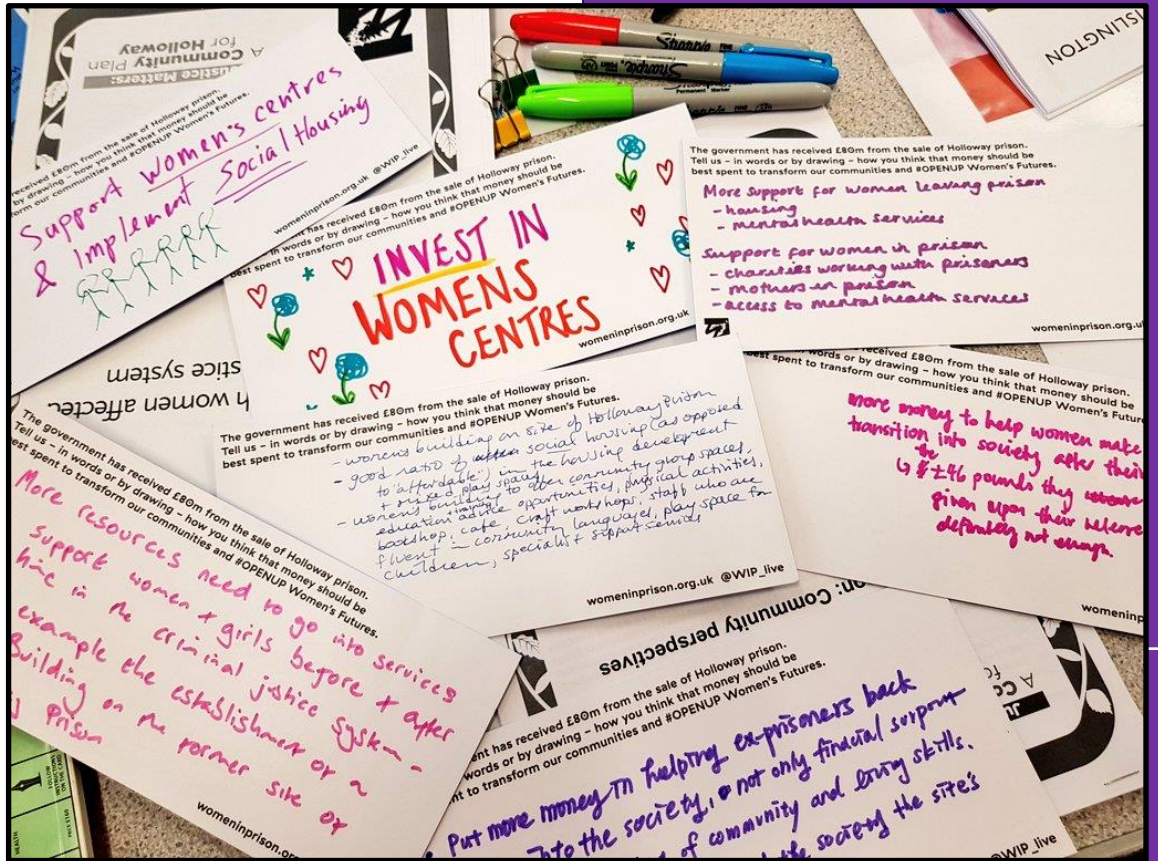 A Community Plan
for Holloway
Justice Matters:
received £80m from the sale of Holloway prison.
by drawing – how you think that money should be
form our communities and #OPENUP Women's Futures.
Support women's centres
& implement Social Housing
womeninprison.org.uk @WIP_live
Sharpie
Sharpie
Permanent Marker
ISLINGTON
has received £80m from the sale of Holloway prison.
in words or by drawing – how you think that money should be
best spent to transform our communities and #OPENUP Women's Futures.
INVEST IN
WOMENS
CENTRES
womeninprison.org.uk
The government has received £80m from the sale of Holloway prison.
Tell us – in words or by drawing – how you think that money should be
best spent to transform our communities and #OPENUP Women's Futures.
More support for women leaving prison
- housing
- mental health services
Support for women in prison
- charities working with prisoners
- mothers in prison
- access to mental health services
womeninprison.org.u
stice system
h women affected
The government has received £80m from the sale of Holloway prison.
Tell us – in words or by drawing – how you think that money should be
best spent to transform our communities and #OPENUP Women's Futures.
- womens building on site of Holloway Prison
- good ratio of social housing (as opposed
to "affordable") in the housing development
+ mixed play spaces
- womens building to offer community group spaces,
education training advice opportunities, physical activities,
bookshop, cafe, craft workshops, staff who are
fluent in community languages, play space for
children, specialist support services
womeninprison.org.uk @WIP_live
received £80m from the sale of Holloway prison.
words or by drawing – how you think that money should be
est spent to transform our communities and #OPENUP Women's Future
more money to help women make
transition into society after their
↳ the £46 pounds they
given upon their release
definitely not enough.
womeninp
The government has received £80m from the sale of Holloway prison.
Tell us – in words or by drawing – how you think that money should be
best spent to transform our communities and #OPENUP Women's Futures.
More resources need to go into services
support women + girls before + after
time in the criminal justice system -
example the establishment of a
Building on the former site of
prison
womeninprison.org.uk
on: Community perspectives
A Co
fo
ent has received £80m from the sale of Holloway prison.
words or by drawing – how you think that money should be
nt to transform our communities and #OPENUP Women's Futures.
Put more money in helping ex-prisoners back
into the society, not only financial support
of community and living skills.
the society the site's
@WIP_live
HEALTH
FOLLOW
INSTRUCTIONS
ON THE CARD